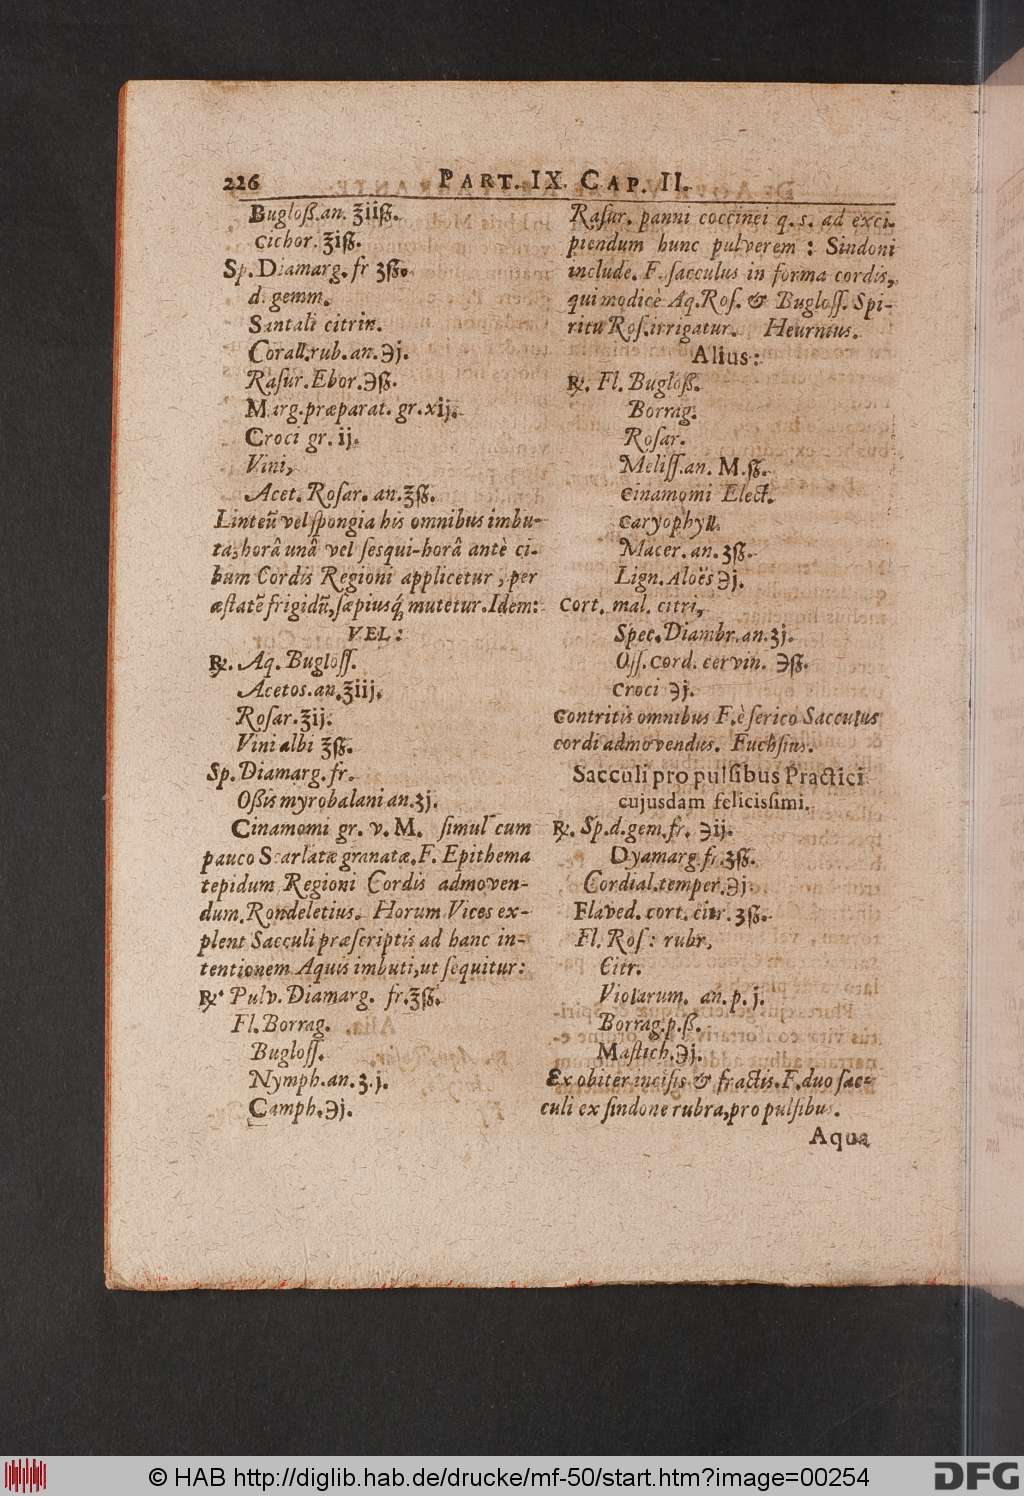 226 PART. IX. CAP. II.
Bugloß. an. ℥iiß.
Cichor. ℥iß.
Sp. Diamarg. fr ʒß.
d. gemm.
Santali citrin.
Corall. rub. an. ℈j.
Rasur. Ebor. ℈ß.
Marg. præparat. gr. xij.
Croci gr. ij.
Vini,
Acet. Rosar. an. ℥ß.
Linteũ vel spongia his omnibus imbu-
ta, horâ unâ vel sesqui-horâ antè ci-
bum Cordis Regioni applicetur, per
æstatẽ frigidũ, sæpiusq́; mutetur. Idem:
VEL:
℞. Aq. Bugloss.
Acetos. an. ℥iij.
Rosar. ℥ij.
Vini albi ℥ß.
Sp. Diamarg. fr.
Oßis myrobalani an. ʒj.
Cinamomi gr. v. M. simul cum
pauco Scarlatæ granatæ. F. Epithema
tepidum Regioni Cordis admoven-
dum. Rondeletius. Horum Vices ex-
plent Sacculi præscriptis ad hanc in-
tentionem Aquis imbuti, ut sequitur:
℞. Pulv. Diamarg. fr. ℥ß.
Fl. Borrag.
Bugloss.
Nymph. an. ʒ. j.
Camph. ℈j.
Rasur. panni coccinei q. s. ad exci-
piendum hunc pulverem: Sindoni
include. F. sacculus in forma cordis,
qui modicè Aq. Ros. & Bugloss. Spi-
ritu Ros. irrigatur. Heurnius.
Alius:
℞. Fl. Bugloß.
Borrag.
Rosar.
Meliss. an. M. ß.
Cinamomi Elect.
Caryophyll.
Macer. an. ʒß.
Lign. Aloës ℈j.
Cort. mal. citri,
Spec. Diambr. an. ʒj.
Oss. Cord. cervin. ℈ß.
Croci ℈j.
Contritis omnibus F. è serico Sacculus
cordi admovendus. Fuchsius.
Sacculi pro pulsibus Practici
cujusdam felicissimi.
℞. Sp. d. gem. fr. ℈ij.
Dyamarg. fr. ʒß.
Cordial. temper. ℈j
Flaved. cort. citr. ʒß.
Fl. Ros: rubr,
Citr.
Violarum. an. p. j.
Borrag. p. ß.
Mastich. ℈j.
Ex obiter incisis & fractis. F. duo sac-
culi ex sindone rubra, pro pulsibus.
Aqua
© HAB http://diglib.hab.de/drucke/mf-50/start.htm?image=00254
DFG